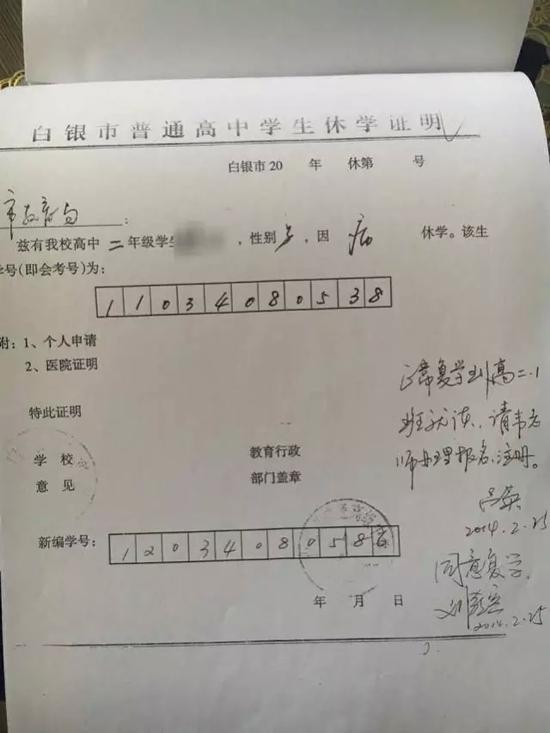 白银市普通高中学生休学证明
白银市20 年 休第 号
市教育局:
兹有我校高中二年级学生 ,性别 ,因病 休学。该生
学号(即会考号)为:
11034080538
附:1、个人申请
2、医院证明
特此证明
学 校 教育行政
意 见 部门盖章
新编学号: 1203408058
年 月 日
复学到高二.1
班就读,请韦老
师办理报名、注册。
2014.2.25
同意复学
2014.2.25